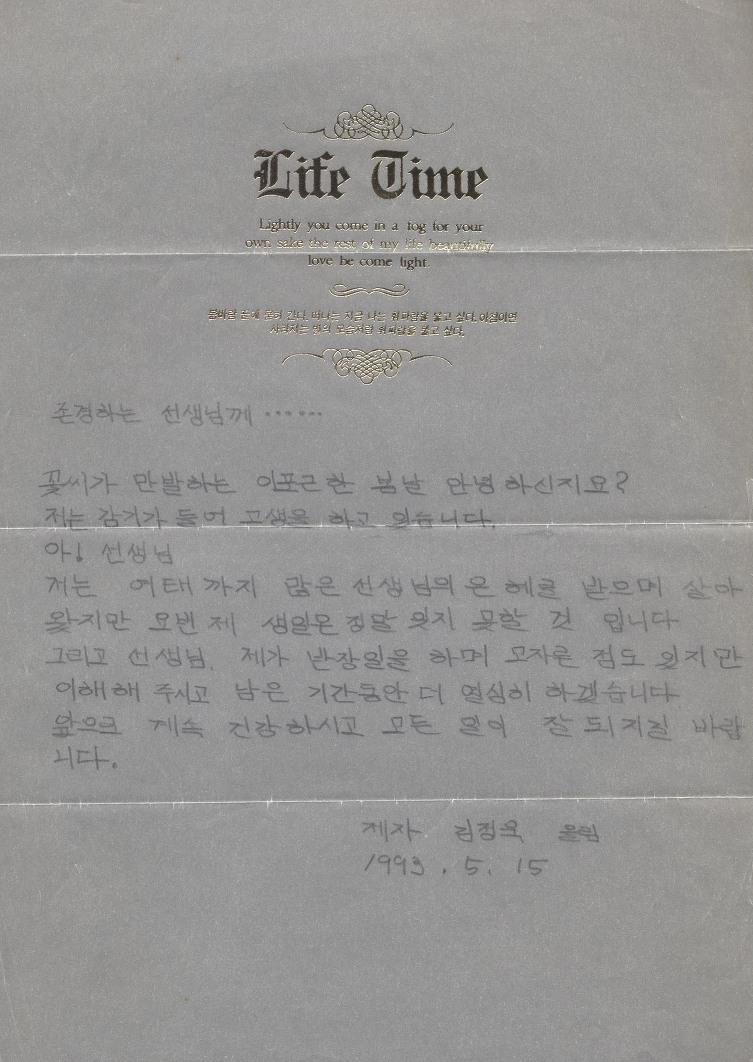 Life Time
Lightly you come in a fog for your
own sake the rest of my life beautifully
love be come light.
물바람 눈에 불려 간다. 떠나는 지금 나는 휘파람을 불고 싶다. 아침이면
사라지는 별의 모습처럼 휘파람을 불고 싶다.
존경하는 선생님께 ……
꽃씨가 만발하는 이포근한 봄날 안녕하신지요?
저는 감기가 들어 고생을 하고 있습니다.
아! 선생님
저는 여태까지 많은 선생님의 은혜를 받으며 살아
왔지만 요번 제 생일은 정말 잊지 못할 것 입니다
그리고 선생님. 제가 반장일을 하며 모자른 점도 있지만
이해해 주시고 남은 기간동안 더 열심히 하겠습니다
앞으로 계속 건강하시고 모든 일이 잘 되시길 바랍
니다.
제자 김정욱 올림
1993. 5. 15